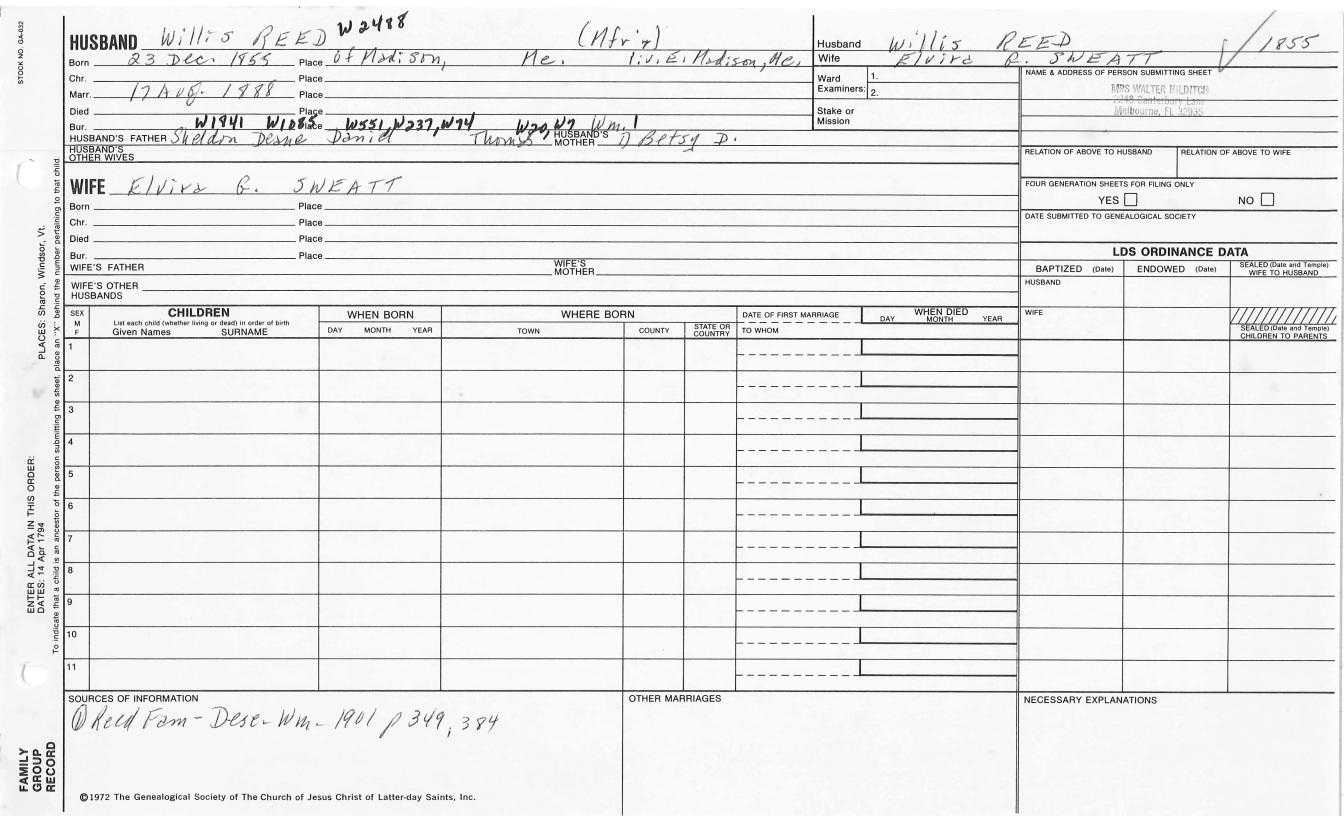 STOCK NO. GA-032
PLACES: Sharon, Windsor, Vt.
ENTER ALL DATA IN THIS ORDER:
DATES: 14 Apr 1794
To indicate that a child is an ancestor of the person submitting the sheet, place an "X" behind the number pertaining to that child.
FAMILY GROUP RECORD
HUSBAND Willis REED W2488 (Mfr'g)
Born 23 Dec. 1855 Place of Madison, Me. liv. E. Madison, Me.
Chr. Place
Marr. 17 Aug. 1888 Place
Died Place
Bur. Place W1941 W1085 W551, W237, W74 W20, W7 Wm.1
HUSBAND'S FATHER Sheldon Deane David Thomas HUSBAND'S MOTHER Betsy D.
HUSBAND'S OTHER WIVES
WIFE Elvira G. SWEATT
Born Place
Chr. Place
Died Place
Bur. Place
WIFE'S FATHER WIFE'S MOTHER
WIFE'S OTHER HUSBANDS
Husband Willis REED 1855
Wife Elvira G. SWEATT
Ward Examiners: 1.
2.
Stake or Mission
NAME & ADDRESS OF PERSON SUBMITTING SHEET
MRS WALTER HILDITCH
Canterbury Lane
Melbourne, FL 32935
RELATION OF ABOVE TO HUSBAND RELATION OF ABOVE TO WIFE
FOUR GENERATION SHEETS FOR FILING ONLY
YES NO
DATE SUBMITTED TO GENEALOGICAL SOCIETY
LDS ORDINANCE DATA
BAPTIZED (Date) ENDOWED (Date) SEALED (Date and Temple) WIFE TO HUSBAND
HUSBAND
WIFE
SEALED (Date and Temple) CHILDREN TO PARENTS
SEX M F
CHILDREN
List each child (whether living or dead) in order of birth
Given Names SURNAME
WHEN BORN
DAY MONTH YEAR
WHERE BORN
TOWN COUNTY STATE OR COUNTRY
DATE OF FIRST MARRIAGE
TO WHOM
WHEN DIED
DAY MONTH YEAR
1
2
3
4
5
6
7
8
9
10
11
SOURCES OF INFORMATION
① Reed Fam - Desc - Wm - 1901 p 349, 384
OTHER MARRIAGES
NECESSARY EXPLANATIONS
©1972 The Genealogical Society of The Church of Jesus Christ of Latter-day Saints, Inc.